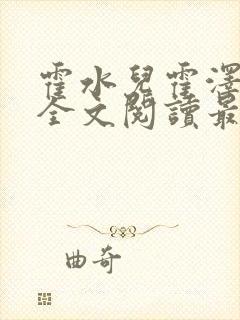 霍水兒霍澤
全文閱讀最
曲奇